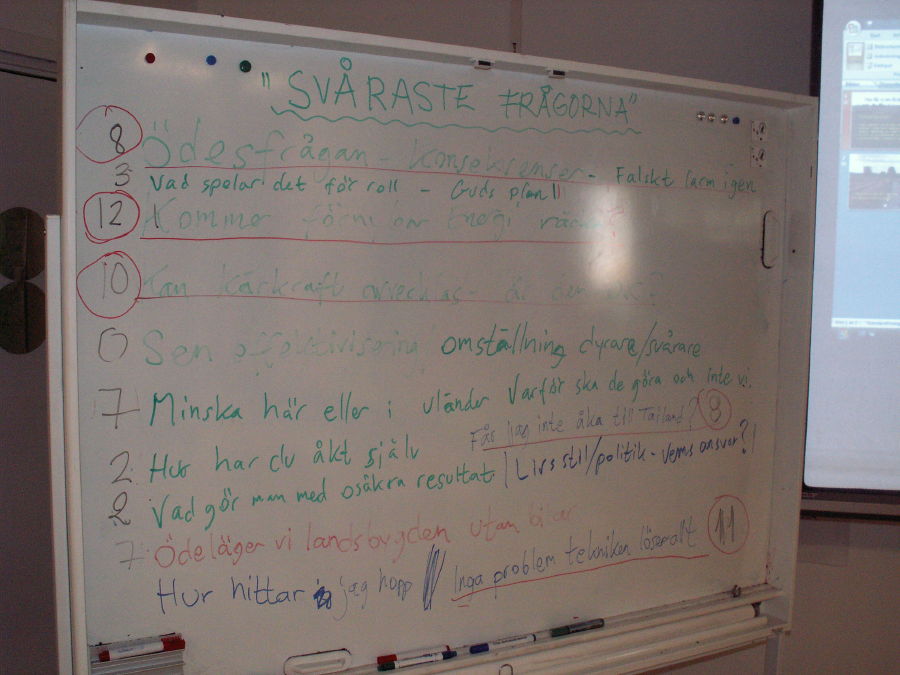 "SVÅRASTE FRÅGORNA"
8 Ödesfrågan - Konsekvenser - Falskt larm igen
3 Vad spelar det för roll - Guds plan
12 Kommer förnybar Energi räcka?
10 Kan kärkraft avvecklas - är den OK?
0 Sen effektivisering omställning dyrare/svårare
7 Minska här eller i uländer Varför ska de göra och inte vi.
Får jag inte åka till Tailand? 9
2 Hur har du åkt själv
2 Vad gör man med osäkra resultat | Livsstil/politik - vems ansvar?
7 Ödeläger vi landsbygden utan bilar
Hur hittar jag hopp Inga problem tekniken löser allt 11